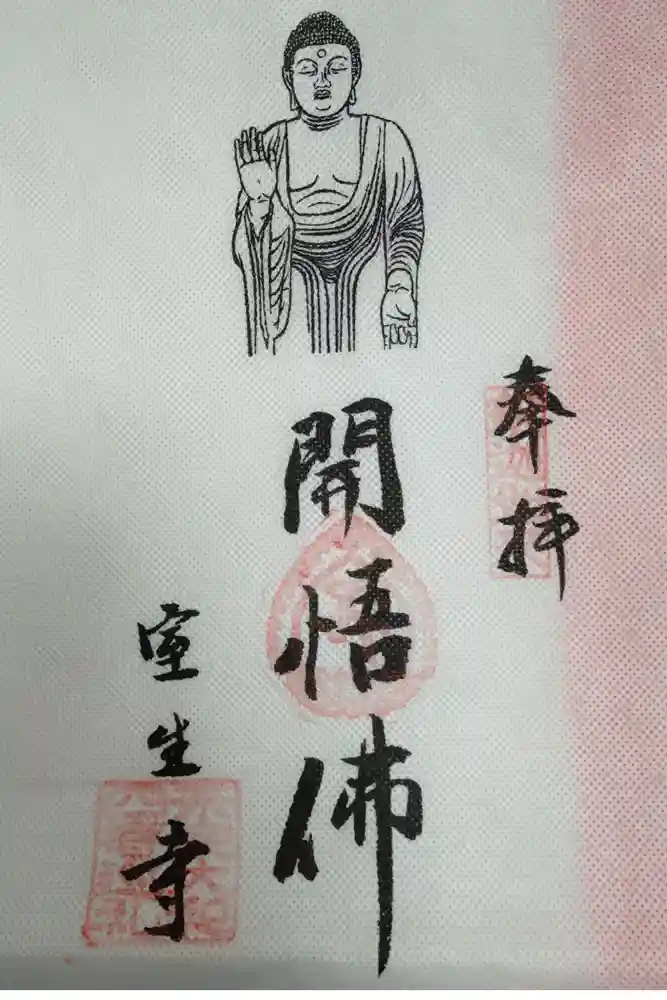 奉拝
開悟佛
室生寺